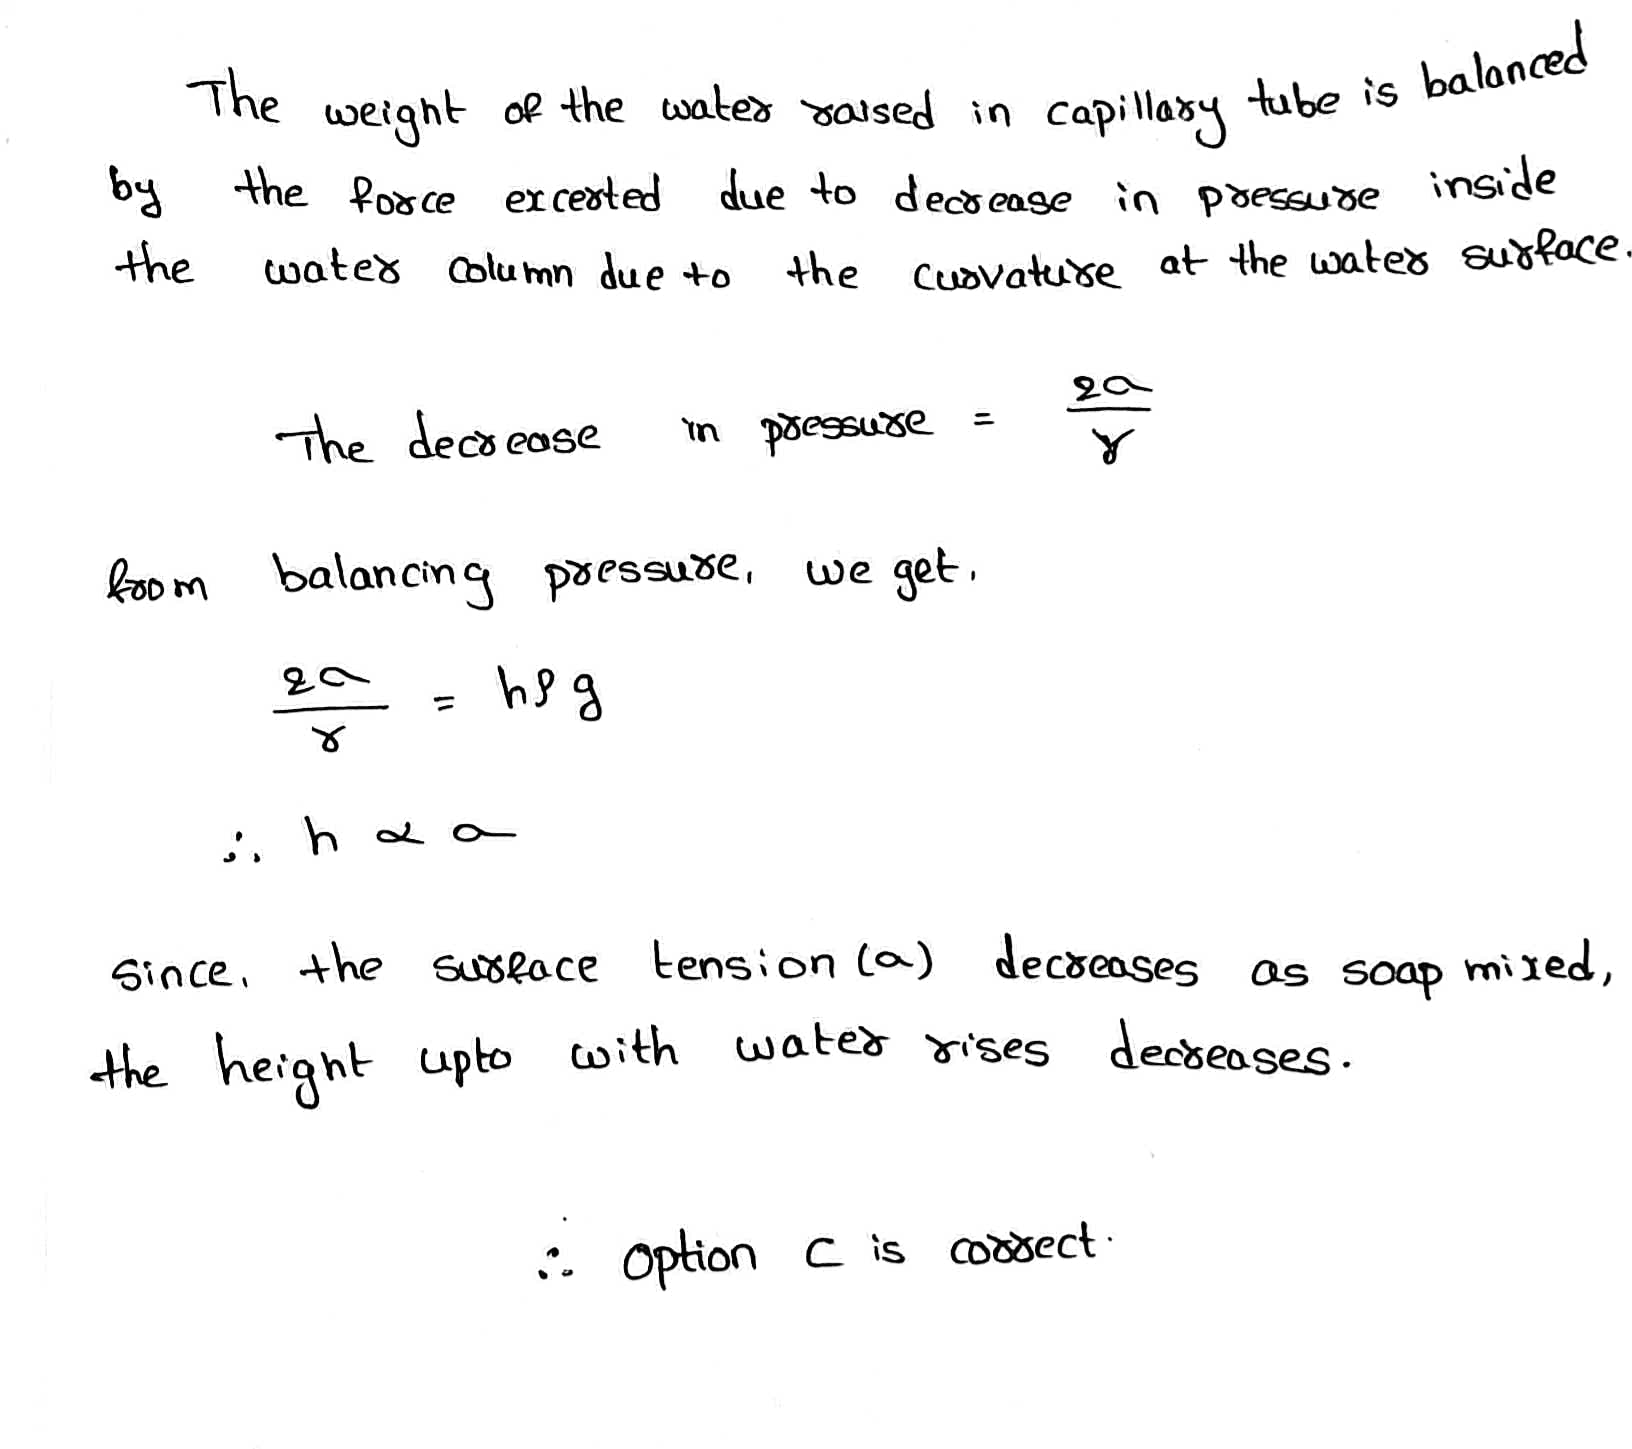 The weight of the water raised in capillary tube is balanced
by the force excerted due to decrease in pressure inside
the water column due to the curvature at the water surface.
The decrease in pressure = 2σ/r
from balancing pressure, we get,
2σ/r = hρg
∴ h ∝ σ
Since, the surface tension (σ) decreases as soap mixed,
the height upto with water rises decreases.
∴ option C is correct.